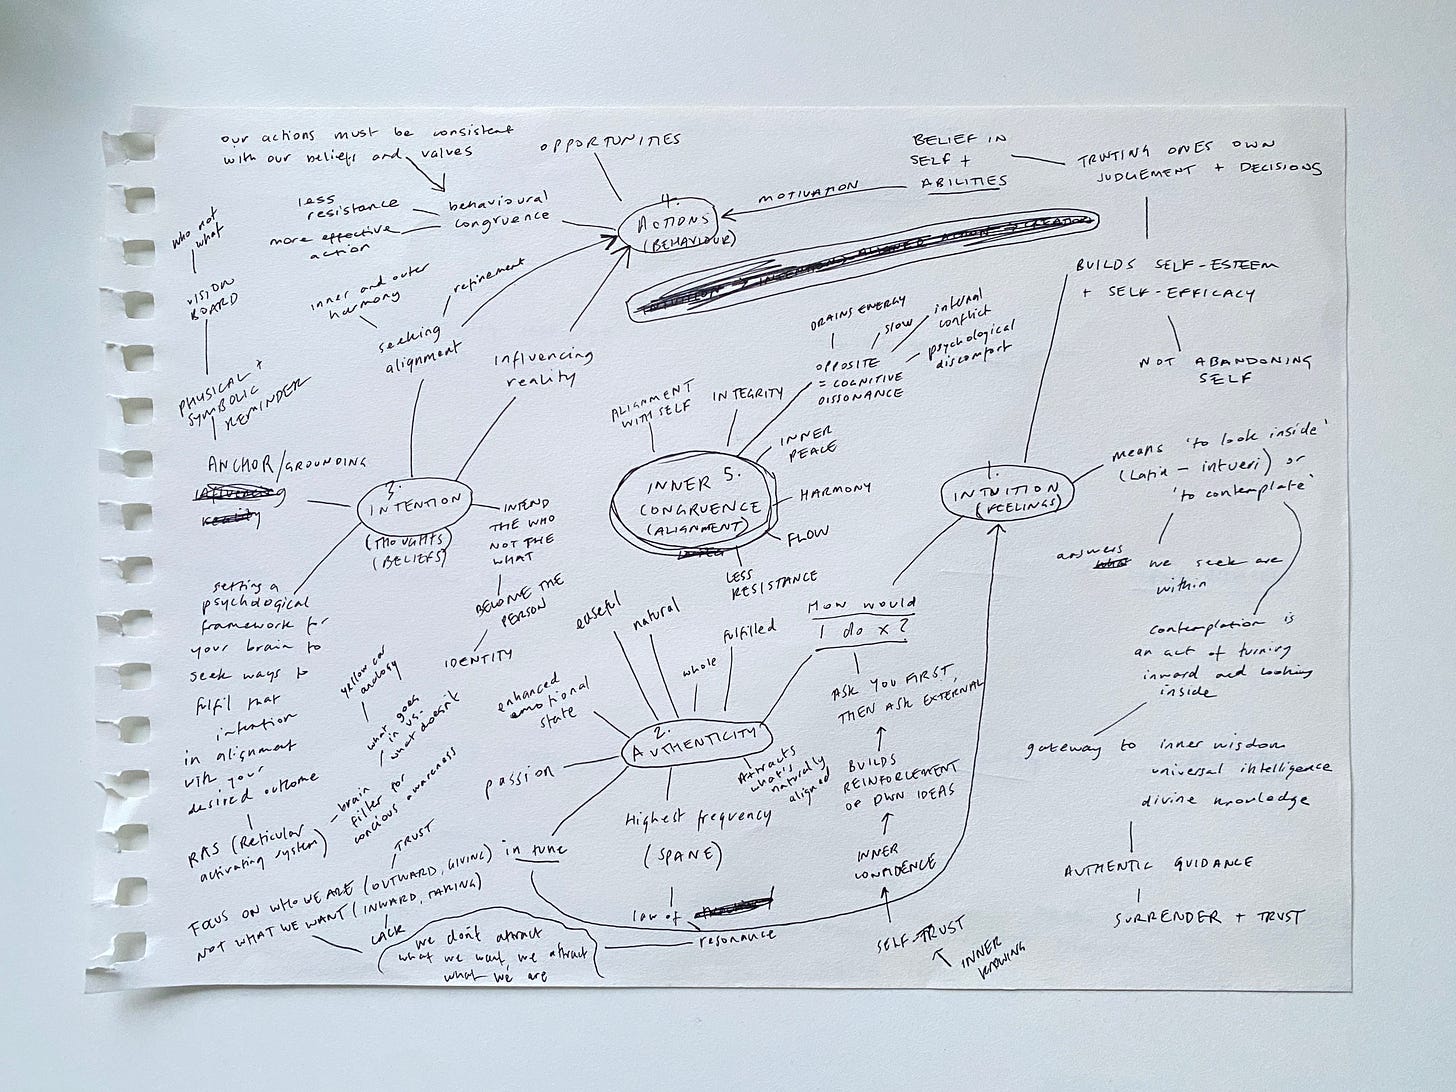 our actions must be consistent
with our beliefs and values
OPPORTUNITIES
BELIEF IN
SELF +
ABILITIES
TRUTING ONES OWN
JUDGEMENT + DECISIONS
MOTIVATION
4.
ACTIONS
(BEHAVIOUR)
less
resistance
more effective
action
behavioural
congruence
who not
what
VISION
BOARD
PHYSICAL +
SYMBOLIC
REMINDER
inner and outer
harmony
refinement
seeking
alignment
influencing
reality
BUILDS SELF-ESTEEM
+ SELF-EFFICACY
NOT ABANDONING
SELF
DRAINS ENERGY
slow
internal
conflict
psychological
discomfort
OPPOSITE
= COGNITIVE
DISSONANCE
ALIGNMENT
WITH SELF
INTEGRITY
INNER
PEACE
HARMONY
FLOW
LESS
RESISTANCE
INNER 5.
CONGRUENCE
(ALIGNMENT)
ANCHOR/GROUNDING
influencing
reality
3.
INTENTION
(THOUGHTS
(BELIEFS)
INTEND
THE WHO
NOT THE
WHAT
BECOME THE
PERSON
IDENTITY
1.
INTUITION
(FEELINGS)
means 'to look inside'
(Latin - intueri) or
'to contemplate'
answers
we seek are
within
contemplation is
an act of turning
inward and looking
inside
gateway to inner wisdom
universal intelligence
divine knowledge
AUTHENTIC GUIDANCE
SURRENDER + TRUST
setting a
psychological
framework for
your brain to
seek ways to
fulfil that
intention
in alignment
with your
desired outcome
RAS (Reticular
activating system)
yellow car
analogy
what goes
in vs.
what doesn't
brain
filter for
concious awareness
easeful
natural
whole
fulfilled
enhanced
emotional
state
passion
2.
AUTHENTICITY
Attracts
what's
naturally
aligned
How would
I do x?
ASK YOU FIRST,
THEN ASK EXTERNAL
BUILDS
REINFORCEMENT
OF OWN IDEAS
INNER
CONFIDENCE
SELF-TRUST
INNER
KNOWING
Highest frequency
(SPANE)
law of
resonance
in tune
TRUST
FOCUS ON WHO WE ARE (OUTWARD, GIVING)
NOT WHAT WE WANT (INWARD, TAKING)
LACK
we don't attract
what we want, we attract
what we are